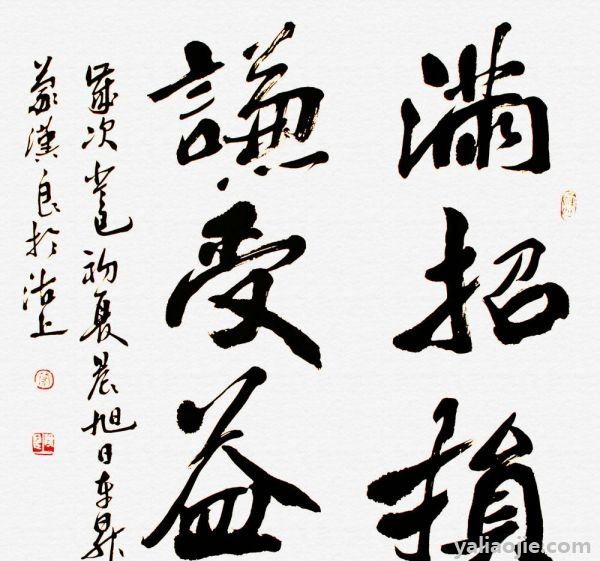 滿招損
謙受益
歲次初夏晨旭日東昇
漢良於沽上
yaliaojie.com